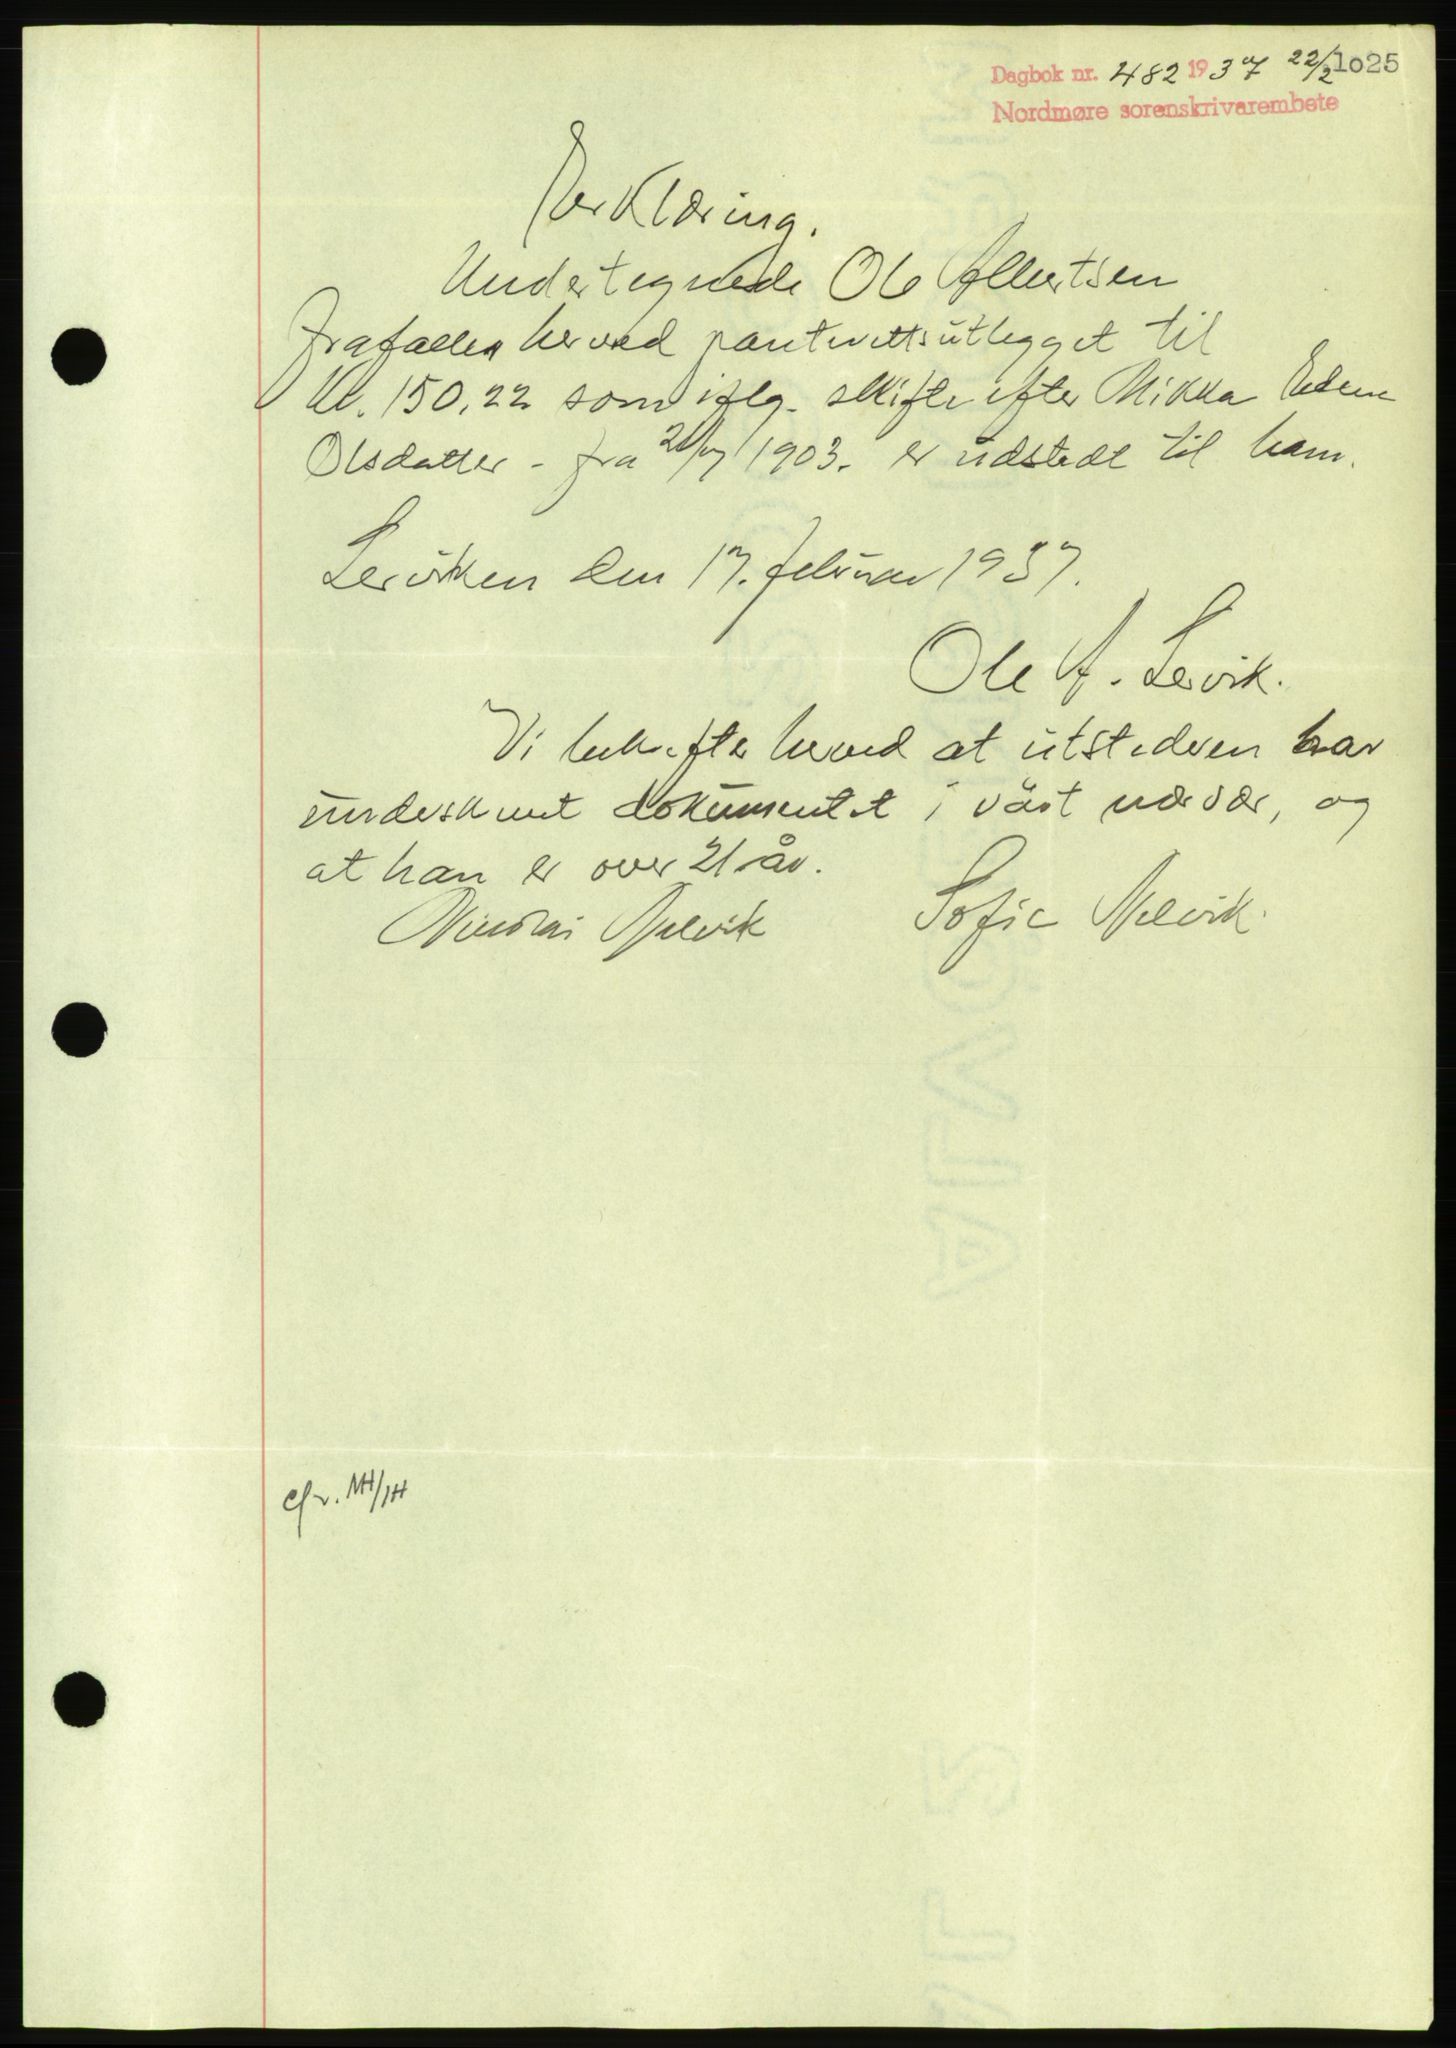 Dagbok nr. 482 1937 22/2 1025
Nordmøre sorenskrivarembete
Erklæring.
Undertegnede Ole Albertsen
frafaller herved panterettsutlegget til
Kr. 150,22 som iflg. skifte efter Mikka
Olsdatter - fra 1903. er udstedt til ham.
Lervikken den 17. februar 1937.
Ole A. Lervik.
Vi bekrefter herved at utstederen har
underskrevet dokumentet i vårt nærvær, og
at han er over 21 år.
Nikolai Melvik Sofie Melvik.
cfr.